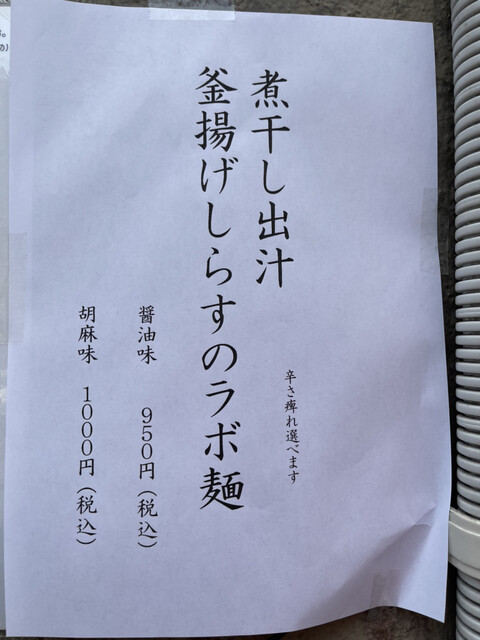 煮干し出汁
釜揚げしらすのラボ麺
辛さ痺れ選べます
醤油味 950円(税込)
胡麻味 1000円(税込)